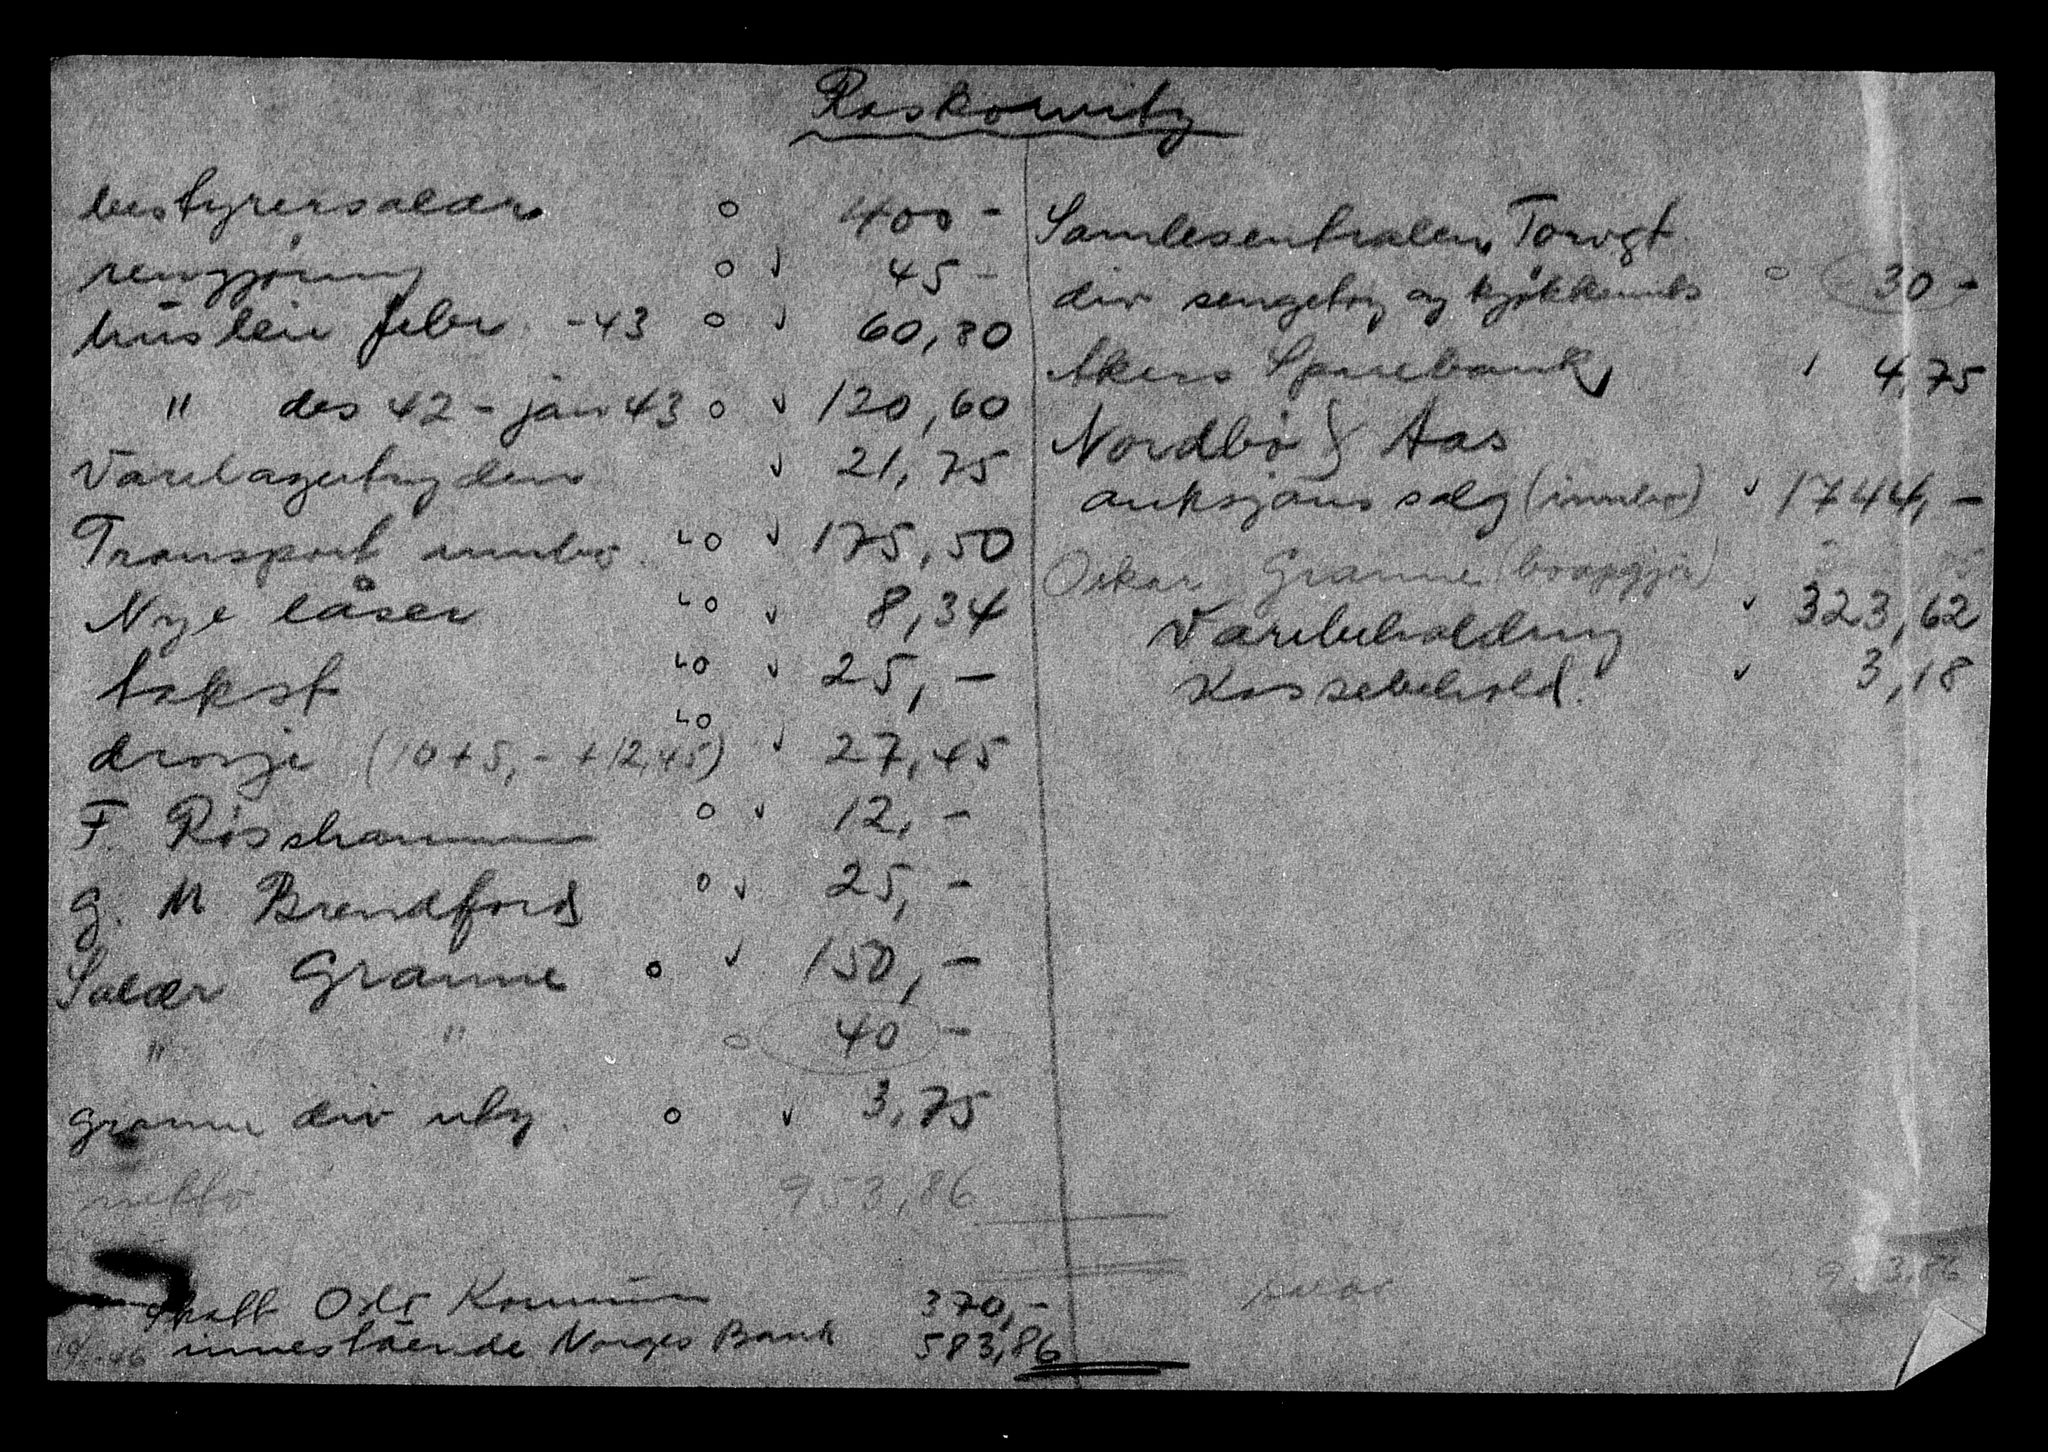 Raskowitz
bestyrersalær o 400 -
rengjøring o √ 45 -
husleie febr. -43 o √ 60,30
" des 42 - jan 43 o √ 120,60
Varelagertrygden √ 21,75
Transport innbo. o √ 175,50
Nye låser o √ 8,34
takst o √ 25,-
drosje (10+5,- +12,45) o √ 27,45
F. Röschmann o √ 12,-
G. M Brendford o √ 25,-
Salær Granne o √ 150,-
" " o 40 -
Granne div utg. o √ 3,75
netto 953,86
skatt Oslo Kommune 370,-
innestående Norges Bank 583,86
Samlesentralen, Torvgt.
div sengetøy og kjøkkenuts o 30 -
Akers Sparebank 4,75
Nordbø & Aas
auksjons salg (innbo) √ 1744,-
Oskar Granne (boopgjør)
Varebeholdning √ 323,62
Kassebehold. √ 3,18